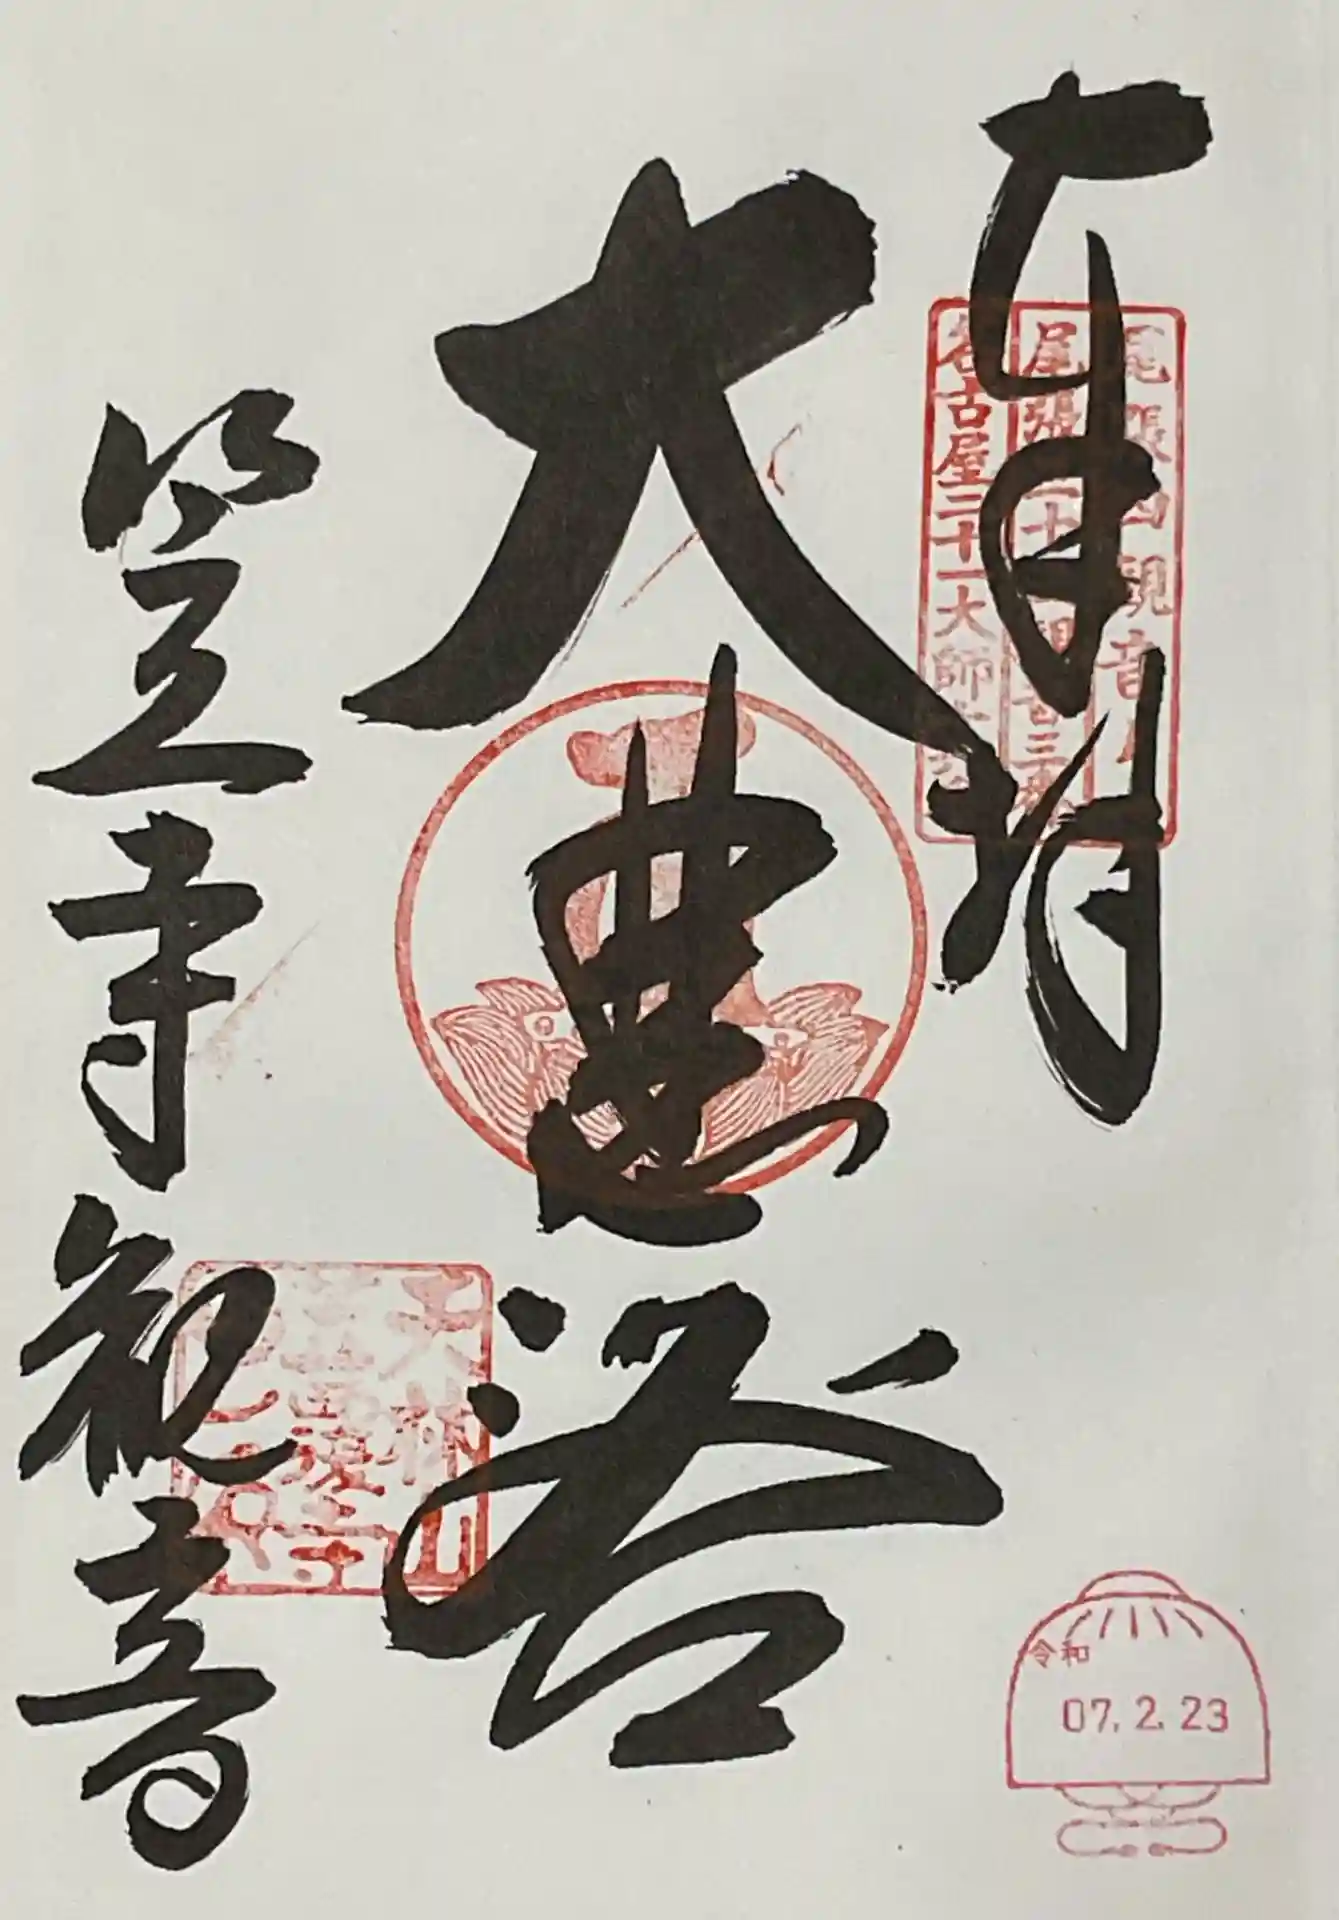 奉拝
尾張四観音
名古屋二十一大師
大悲閣
笠寺観音
天林山
笠覆寺
令和
07.2.23